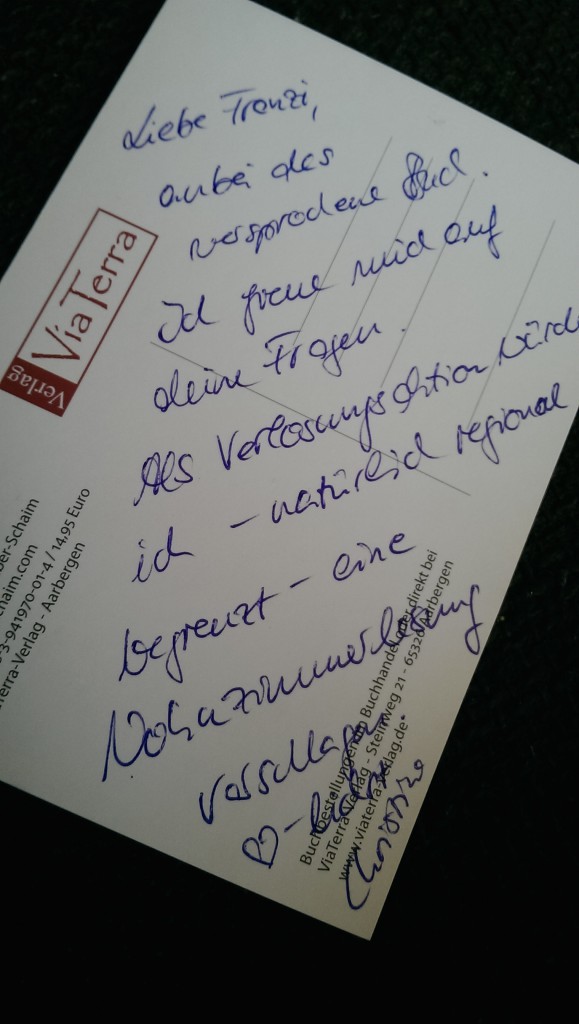 Liebe Franzi,
anbei das
versprochene Buch.
Ich freue mich auf
deine Fragen.
Als Verlosungsaktion würde
ich - natürlich regional
begrenzt - eine
Wohnzimmerlesung
vorschlagen
♡-liche
Christine
ViaTerra
Verlag
er-Schaim
chaim.com
3-941970-01-4 / 14,95 Euro
Terra-Verlag - Aarbergen
Buchbestellungen im Buchhandel oder direkt bei
ViaTerra-Verlag - Steinweg 21 - 65326 Aarbergen
www.viaterra-verlag.de